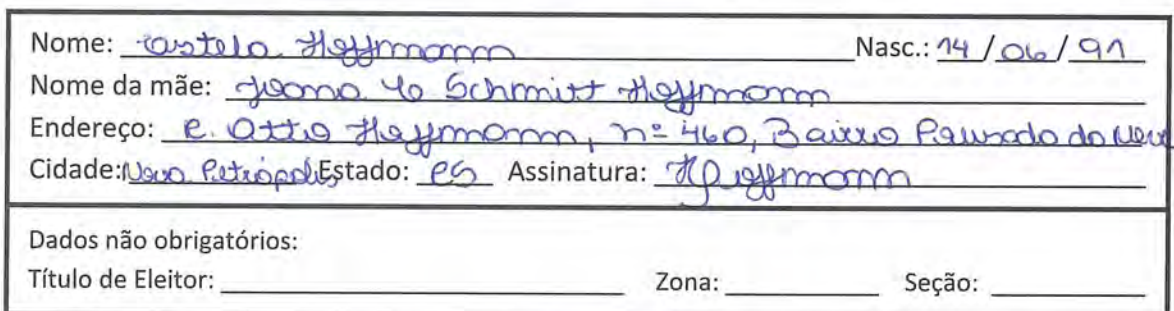 Nome: Hoffmann Nasc.: 14/06/91
Nome da mãe: Schmitt Hoffmann
Endereço: R. Otto Hoffmann, nº 460, Bairro Pousada da Neve
Cidade: Nova Petrópolis Estado: RS Assinatura: Hoffmann
Dados não obrigatórios:
Título de Eleitor: Zona: Seção: